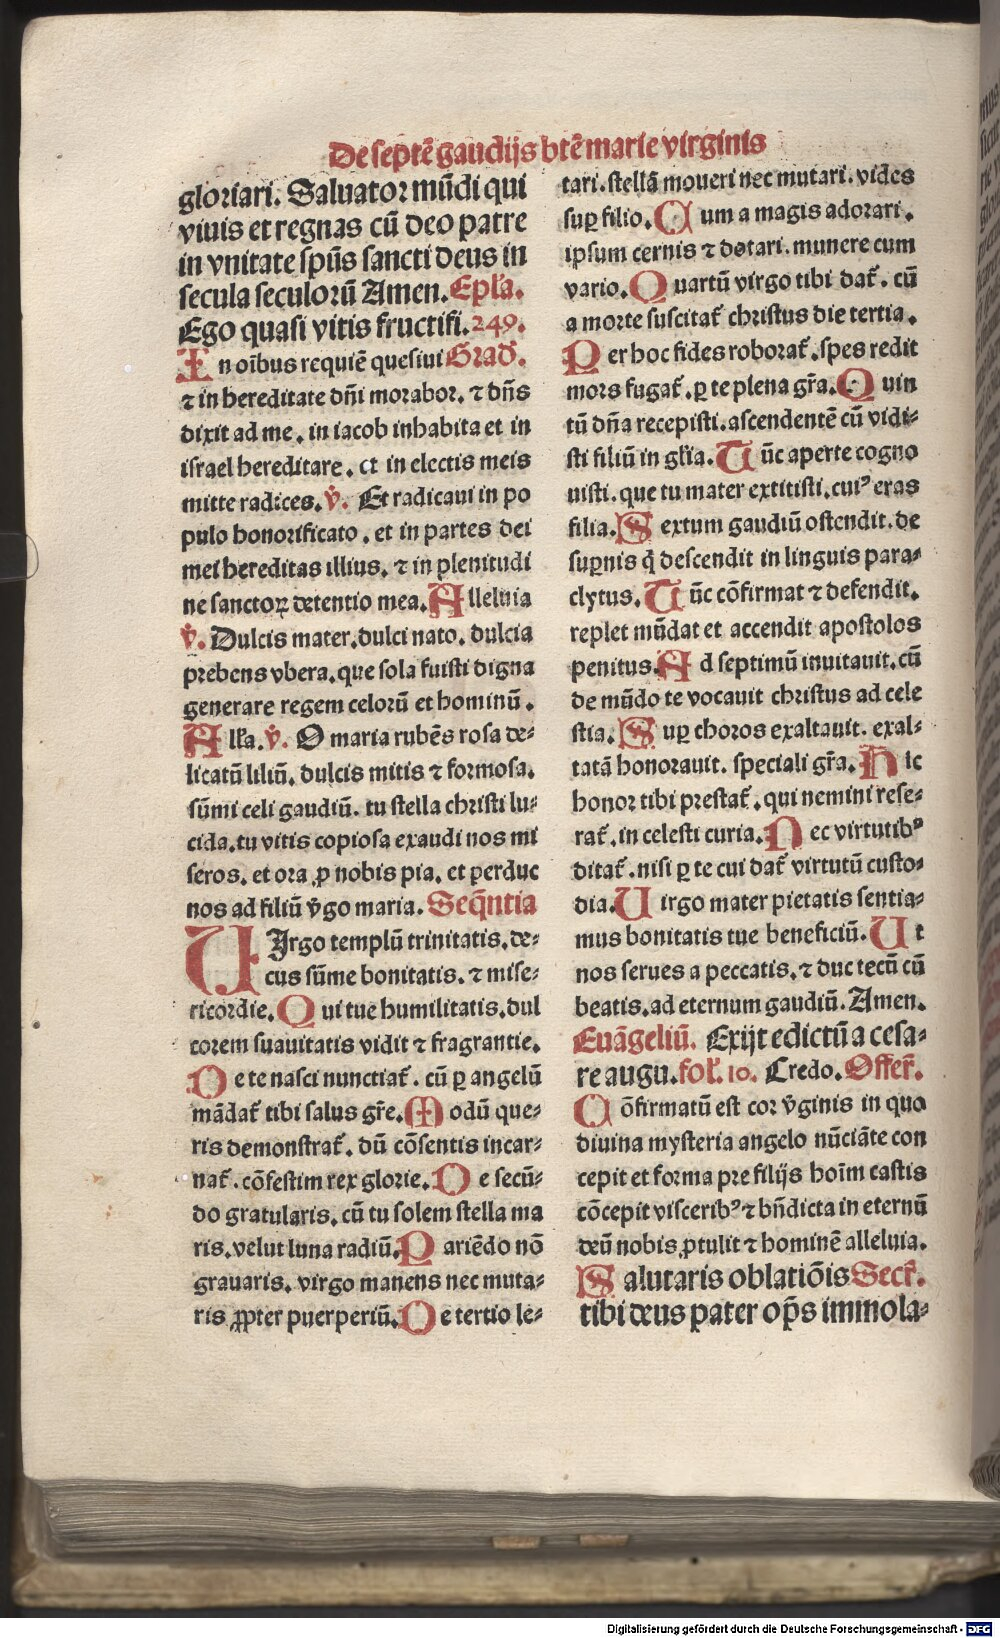 De septē gaudijs btē marie virginis
gloriari. Saluator mūdi qui
viuis et regnas cū deo patre
in vnitate spūs sancti deus in
secula seculorū Amen. Epl'a.
Ego quasi vitis fructifi. 249.
In oībus requiē quesiui Grad̄.
⁊ in hereditate dn̄i morabor. ⁊ dn̄s
dixit ad me. in iacob inhabita et in
israel hereditare. et in electis meis
mitte radices. ℣. Et radicaui in po
pulo honorificato. et in partes dei
mei hereditas illius. ⁊ in plenitudi
ne sanctoꝝ detentio mea. Alleluia
℣. Dulcis mater. dulci nato. dulcia
prebens vbera. que sola fuisti digna
generare regem celorū et hominū.
All'a. ℣. O maria rubēs rosa de⸗
licatū liliū. dulcis mitis ⁊ formosa.
sūmi celi gaudiū. tu stella christi lu⸗
cida. tu vitis copiosa exaudi nos mi
seros. et ora ꝓ nobis pia. et perduc
nos ad filiū v̄go maria. Seq̄ntia
VIrgo templū trinitatis. de⸗
cus sūme bonitatis. ⁊ mise⸗
ricordie. Qui tue humilitatis. dul
corem suauitatis vidit ⁊ fragrantie.
De te nasci nunctiat̄. cū ꝑ angelū
mādat̄ tibi salus gr̄e. Modū que⸗
ris demonstrat̄. dū cōsentis incar⸗
nat̄. cōfestim rex glorie. De secū⸗
do gratularis. cū tu solem stella ma
ris. velut luna radiū. Pariēdo nō
grauaris. virgo manens nec muta⸗
ris ꝓpter puerperiū. De tertio le⸗
tari. stellā moueri nec mutari. vides
suꝑ filio. Cum a magis adorari.
ipsum cernis ⁊ dotari. munere cum
vario. Quartū virgo tibi dat̄. cū
a morte suscitat̄ christus die tertia.
Per hoc fides roborat̄. spes redit
mors fugat̄. ꝑ te plena gr̄a. Quin
tū dn̄a recepisti. ascendentē cū vidi⸗
sti filiū in gl'ia. Tūc aperte cogno
uisti. que tu mater extitisti. cuiꝰ eras
filia. Sextum gaudiū ostendit. de
suꝑnis q̄ descendit in linguis para⸗
clytus. Tūc cōfirmat ⁊ defendit.
replet mūdat et accendit apostolos
penitus. Ad septimū inuitauit. cū
de mūdo te vocauit christus ad cele
stia. Suꝑ choros exaltauit. exal⸗
tatā honorauit. speciali gr̄a. Hic
honor tibi prestat̄. qui nemini rese⸗
rat̄. in celesti curia. Nec virtutibꝰ
ditat̄. nisi ꝑ te cui dat̄ virtutū custo⸗
dia. Virgo mater pietatis sentia⸗
mus bonitatis tue beneficiū. Vt
nos serues a peccatis. ⁊ duc tecū cū
beatis. ad eternum gaudiū. Amen.
Euāgeliū. Exijt edictū a cesa⸗
re augu. fol'. 10. Credo. Offer̄.
Cōfirmatū est cor v̄ginis in quo
diuina mysteria angelo nūciāte con
cepit et forma pre filijs hoīm castis
cōcepit visceribꝰ ⁊ bn̄dicta in eternū
deū nobis ꝓtulit ⁊ hominē alleluia.
Salutaris oblatiōis Secr̄.
tibi deus pater op̄s immola⸗
Digitalisierung gefördert durch die Deutsche Forschungsgemeinschaft - DFG